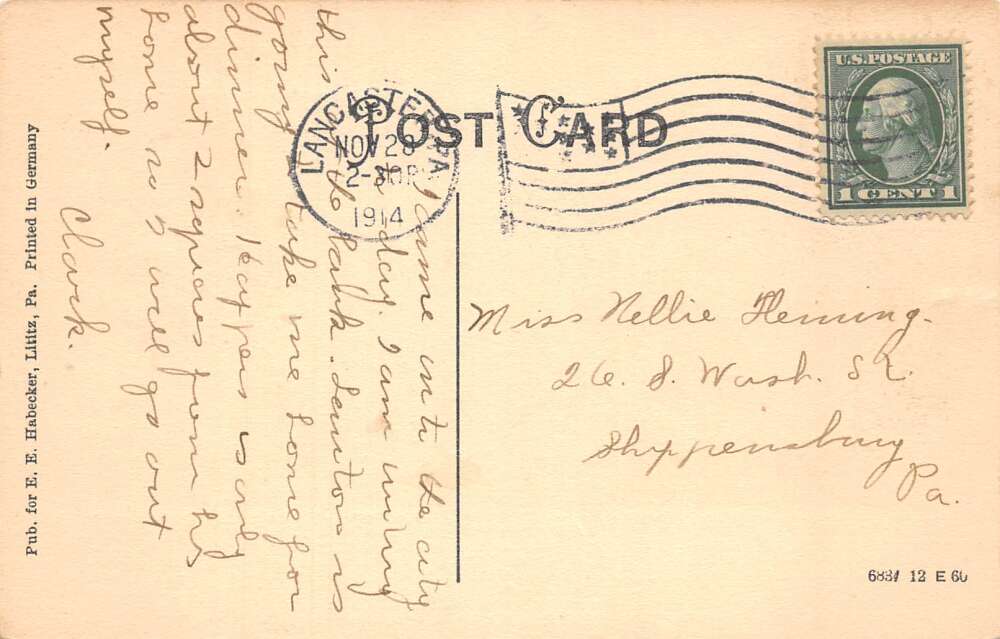 POST CARD
U.S. POSTAGE
1 CENT 1
LANCASTER PA
NOV 28
2-30P
1914
I came into the city
to day. I am writing
this the bank. Denton is
going take me home for
dinner. Kaypers is only
about 2 squares from his
home so I will go out
myself.
Clark.
Miss Nellie Fleming.
26. S. Wash. St.
Shippensburg
Pa.
Pub. for E. E. Habecker, Lititz, Pa. Printed in Germany
12 E 60